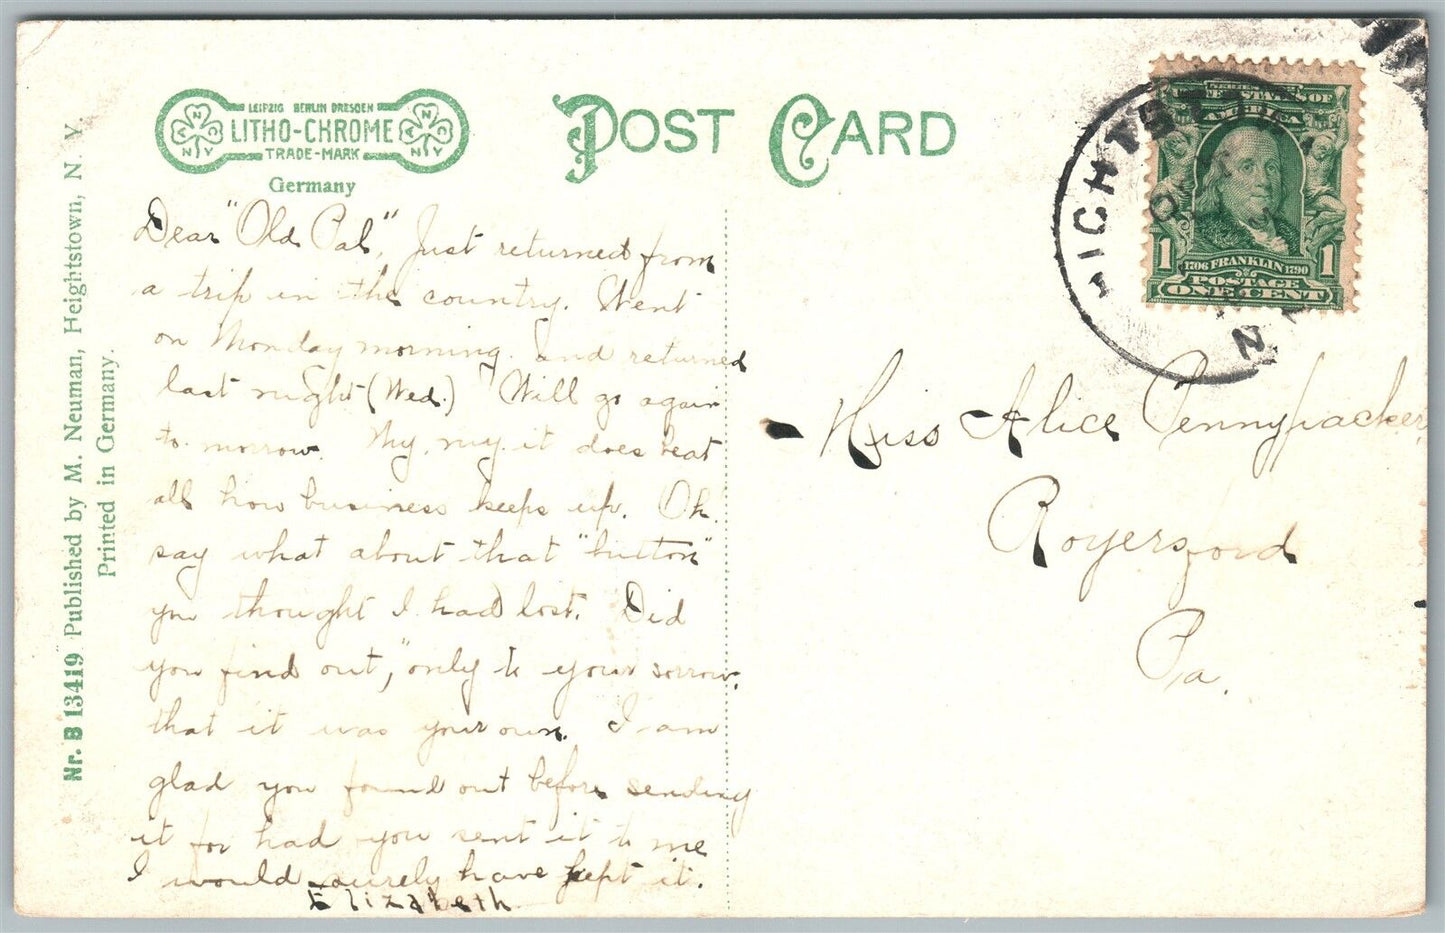 LEIPZIG BERLIN DRESDEN
LITHO-CHROME
TRADE-MARK
Germany
POST CARD
Nr. B 13419 Published by M. Neuman, Heightstown, N. Y.
Printed in Germany.
Dear "Old Pal", Just returned from
a trip in the country. Went
on Monday morning and returned
last night (Wed.) Will go again
to-morrow. My, my it does beat
all how business keeps up. Oh.
say what about that "button"
you thought I had lost. Did
you find out, "only to your sorrow,
that it was your own. I am
glad you found out before sending
it for had you sent it to me
I would surely have kept it.
Elizabeth.
HIGHTSTO
OCT
N
UNITED STATES OF
AMERICA
1 1706 FRANKLIN 1790 1
POSTAGE
ONE CENT
Miss Alice Pennypacker,
Royersford
Pa.